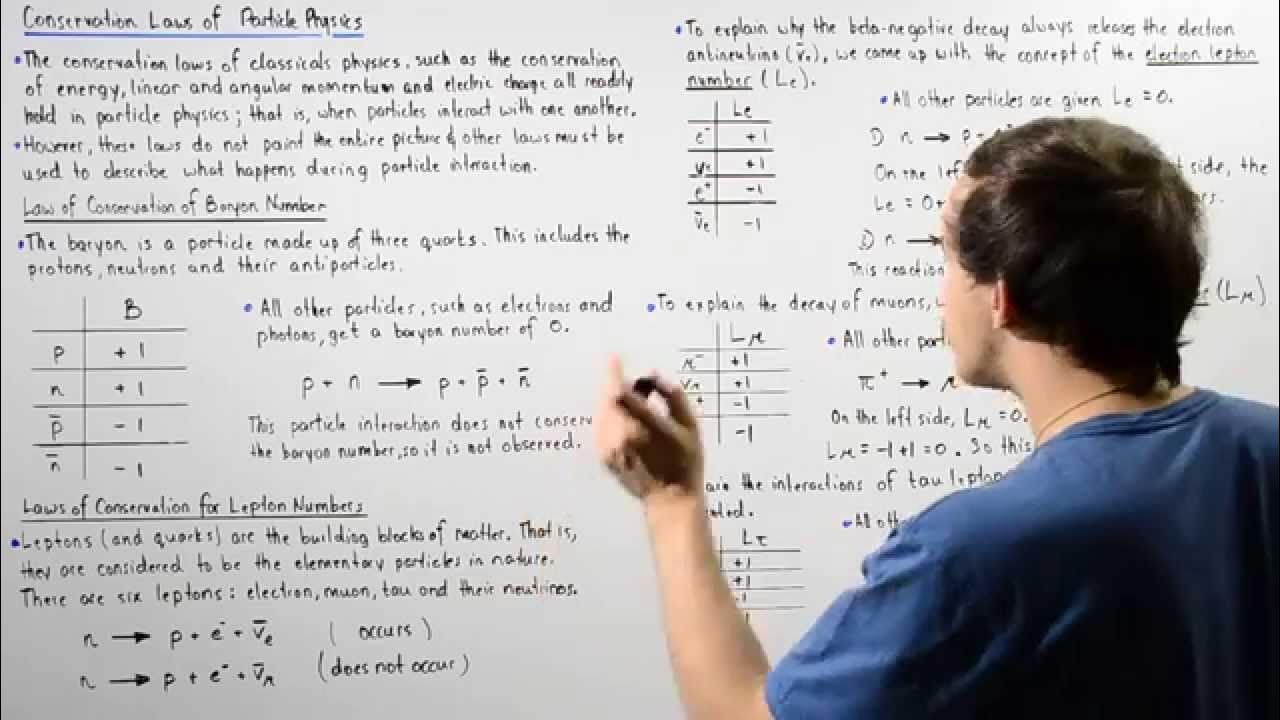 Conservation Laws of Particle Physics
• The conservation laws of classicals physics, such as the conservation
of energy, linear and angular momentum and electric charge all readily
hold in particle physics; that is, when particles interact with one another.
• However, these laws do not paint the entire picture & other laws must be
used to describe what happens during particle interaction.
Law of Conservation of Baryon Number
• The baryon is a particle made up of three quarks. This includes the
protons, neutrons and their antiparticles.
B
p +1
n +1
p̄ -1
n̄ -1
• All other particles, such as electrons and
photons, get a baryon number of 0.
p + n → p + p̄ + n̄
This particle interaction does not conserv
the baryon number, so it is not observed.
Laws of Conservation for Lepton Numbers
• Leptons (and quarks) are the building blocks of matter. That is,
they are considered to be the elementary particles in nature.
There are six leptons: electron, muon, tau and their neutrinos.
n → p + e⁻ + ν̄e (occurs)
n → p + e⁻ + ν̄μ (does not occur)
• To explain why the beta-negative decay always releases the electron
antineutrino (ν̄e), we came up with the concept of the electron lepton
number (Le).
Le
e⁻ +1
νe +1
e⁺ -1
ν̄e -1
• All other particles are given Le = 0.
1) n → p +
On the left side, the
Le = 0+
n →
This reaction
• To explain the decay of muons, (Lμ)
Lμ
μ⁻ +1
νμ +1
+ -1
-1
• All other part
π⁺ → μ
On the left side, Lμ = 0.
Lμ = -1+1 = 0. So this
the interactions of tau lepton
Lτ
+1
+1
-1
• All oth